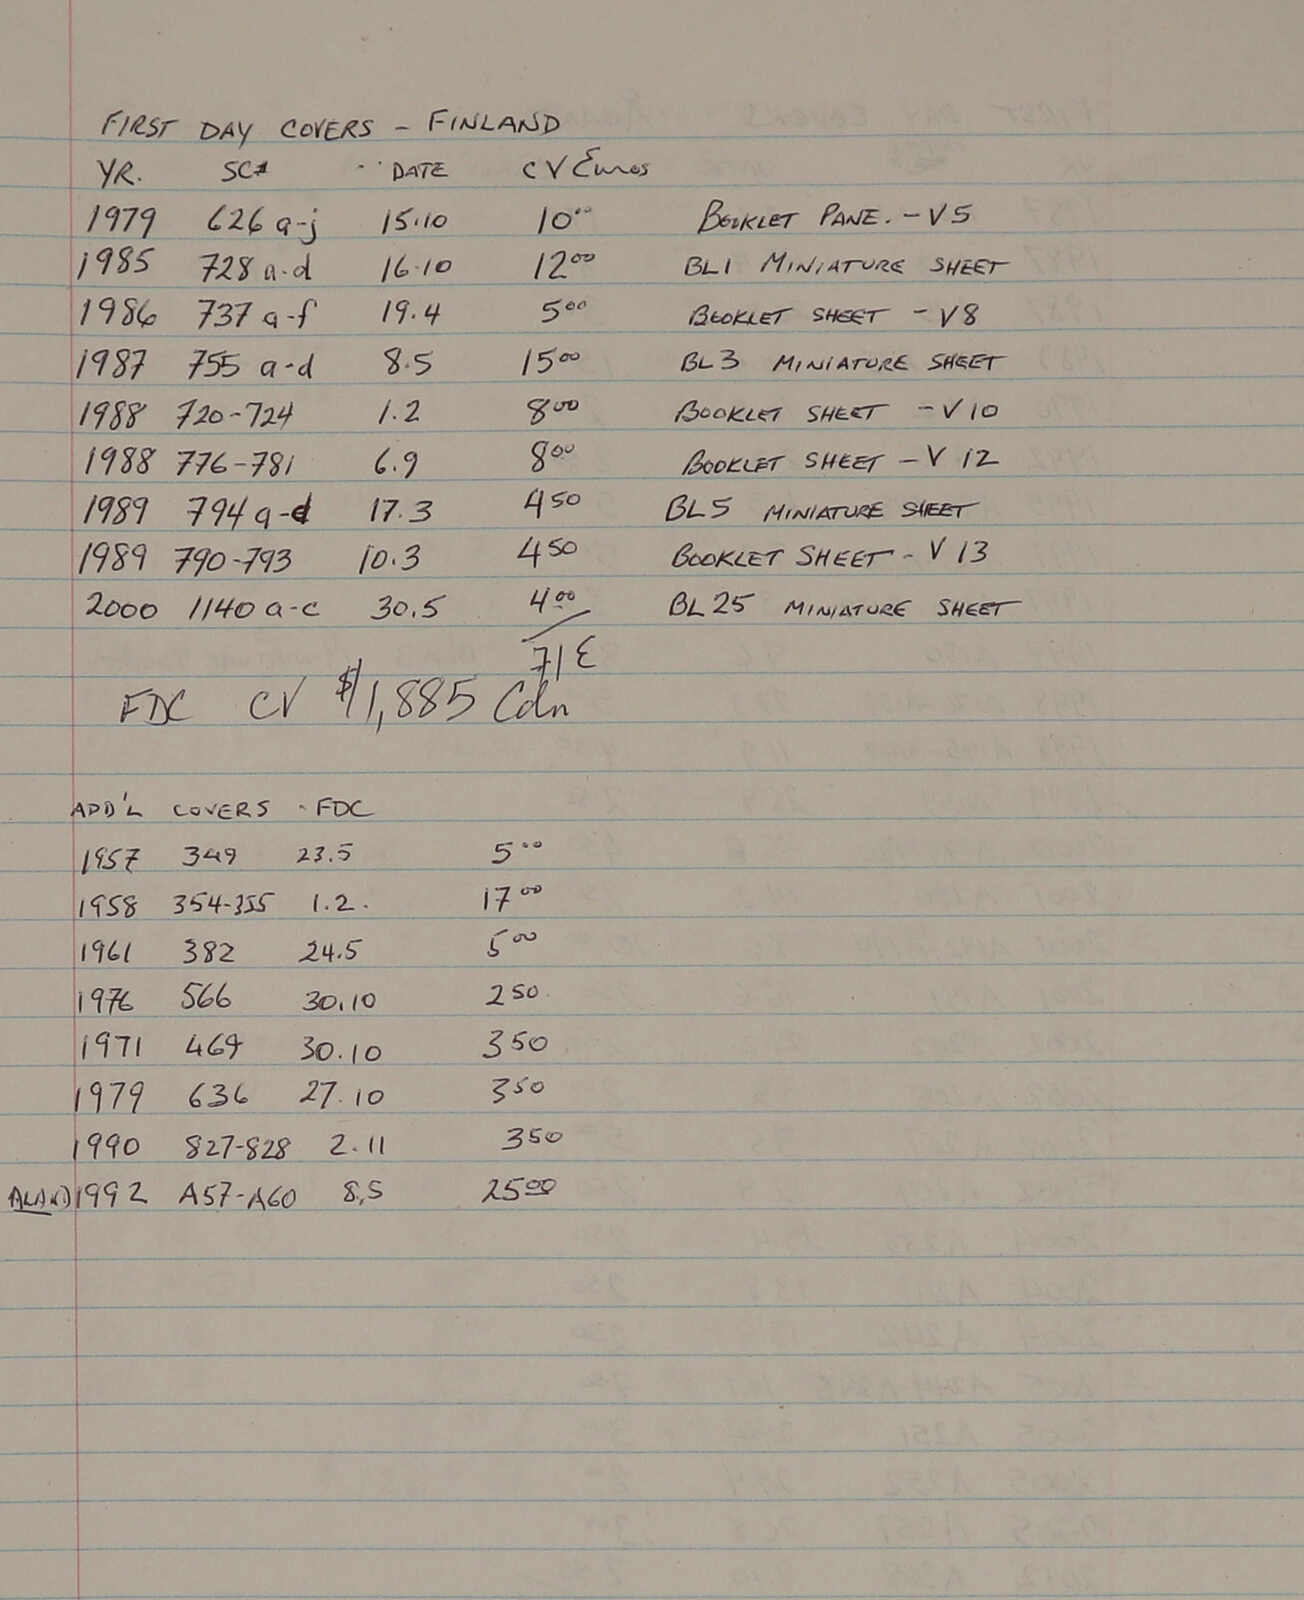 FIRST DAY COVERS - FINLAND
YR. SC# DATE CV Euros
1979 626 a-j 15.10 10.00 BOOKLET PANE. - V5
1985 728 a-d 16.10 12.00 BL1 MINIATURE SHEET
1986 737 a-f 19.4 5.00 BOOKLET SHEET - V8
1987 755 a-d 8.5 15.00 BL3 MINIATURE SHEET
1988 720-724 1.2 8.00 BOOKLET SHEET - V10
1988 776-781 6.9 8.00 BOOKLET SHEET - V 12
1989 794 a-d 17.3 4.50 BL5 MINIATURE SHEET
1989 790-793 10.3 4.50 BOOKLET SHEET - V 13
2000 1140 a-c 30.5 4.00 BL25 MINIATURE SHEET
71 €
FDC CV $1,885 Cdn
ADD'L COVERS - FDC
1957 349 23.5 5.00
1958 354-355 1.2. 17.00
1961 382 24.5 5.00
1976 566 30.10 2.50
1971 469 30.10 3.50
1979 636 27.10 3.50
1990 827-828 2.11 3.50
ALAND 1992 A57-A60 8.5 25.00